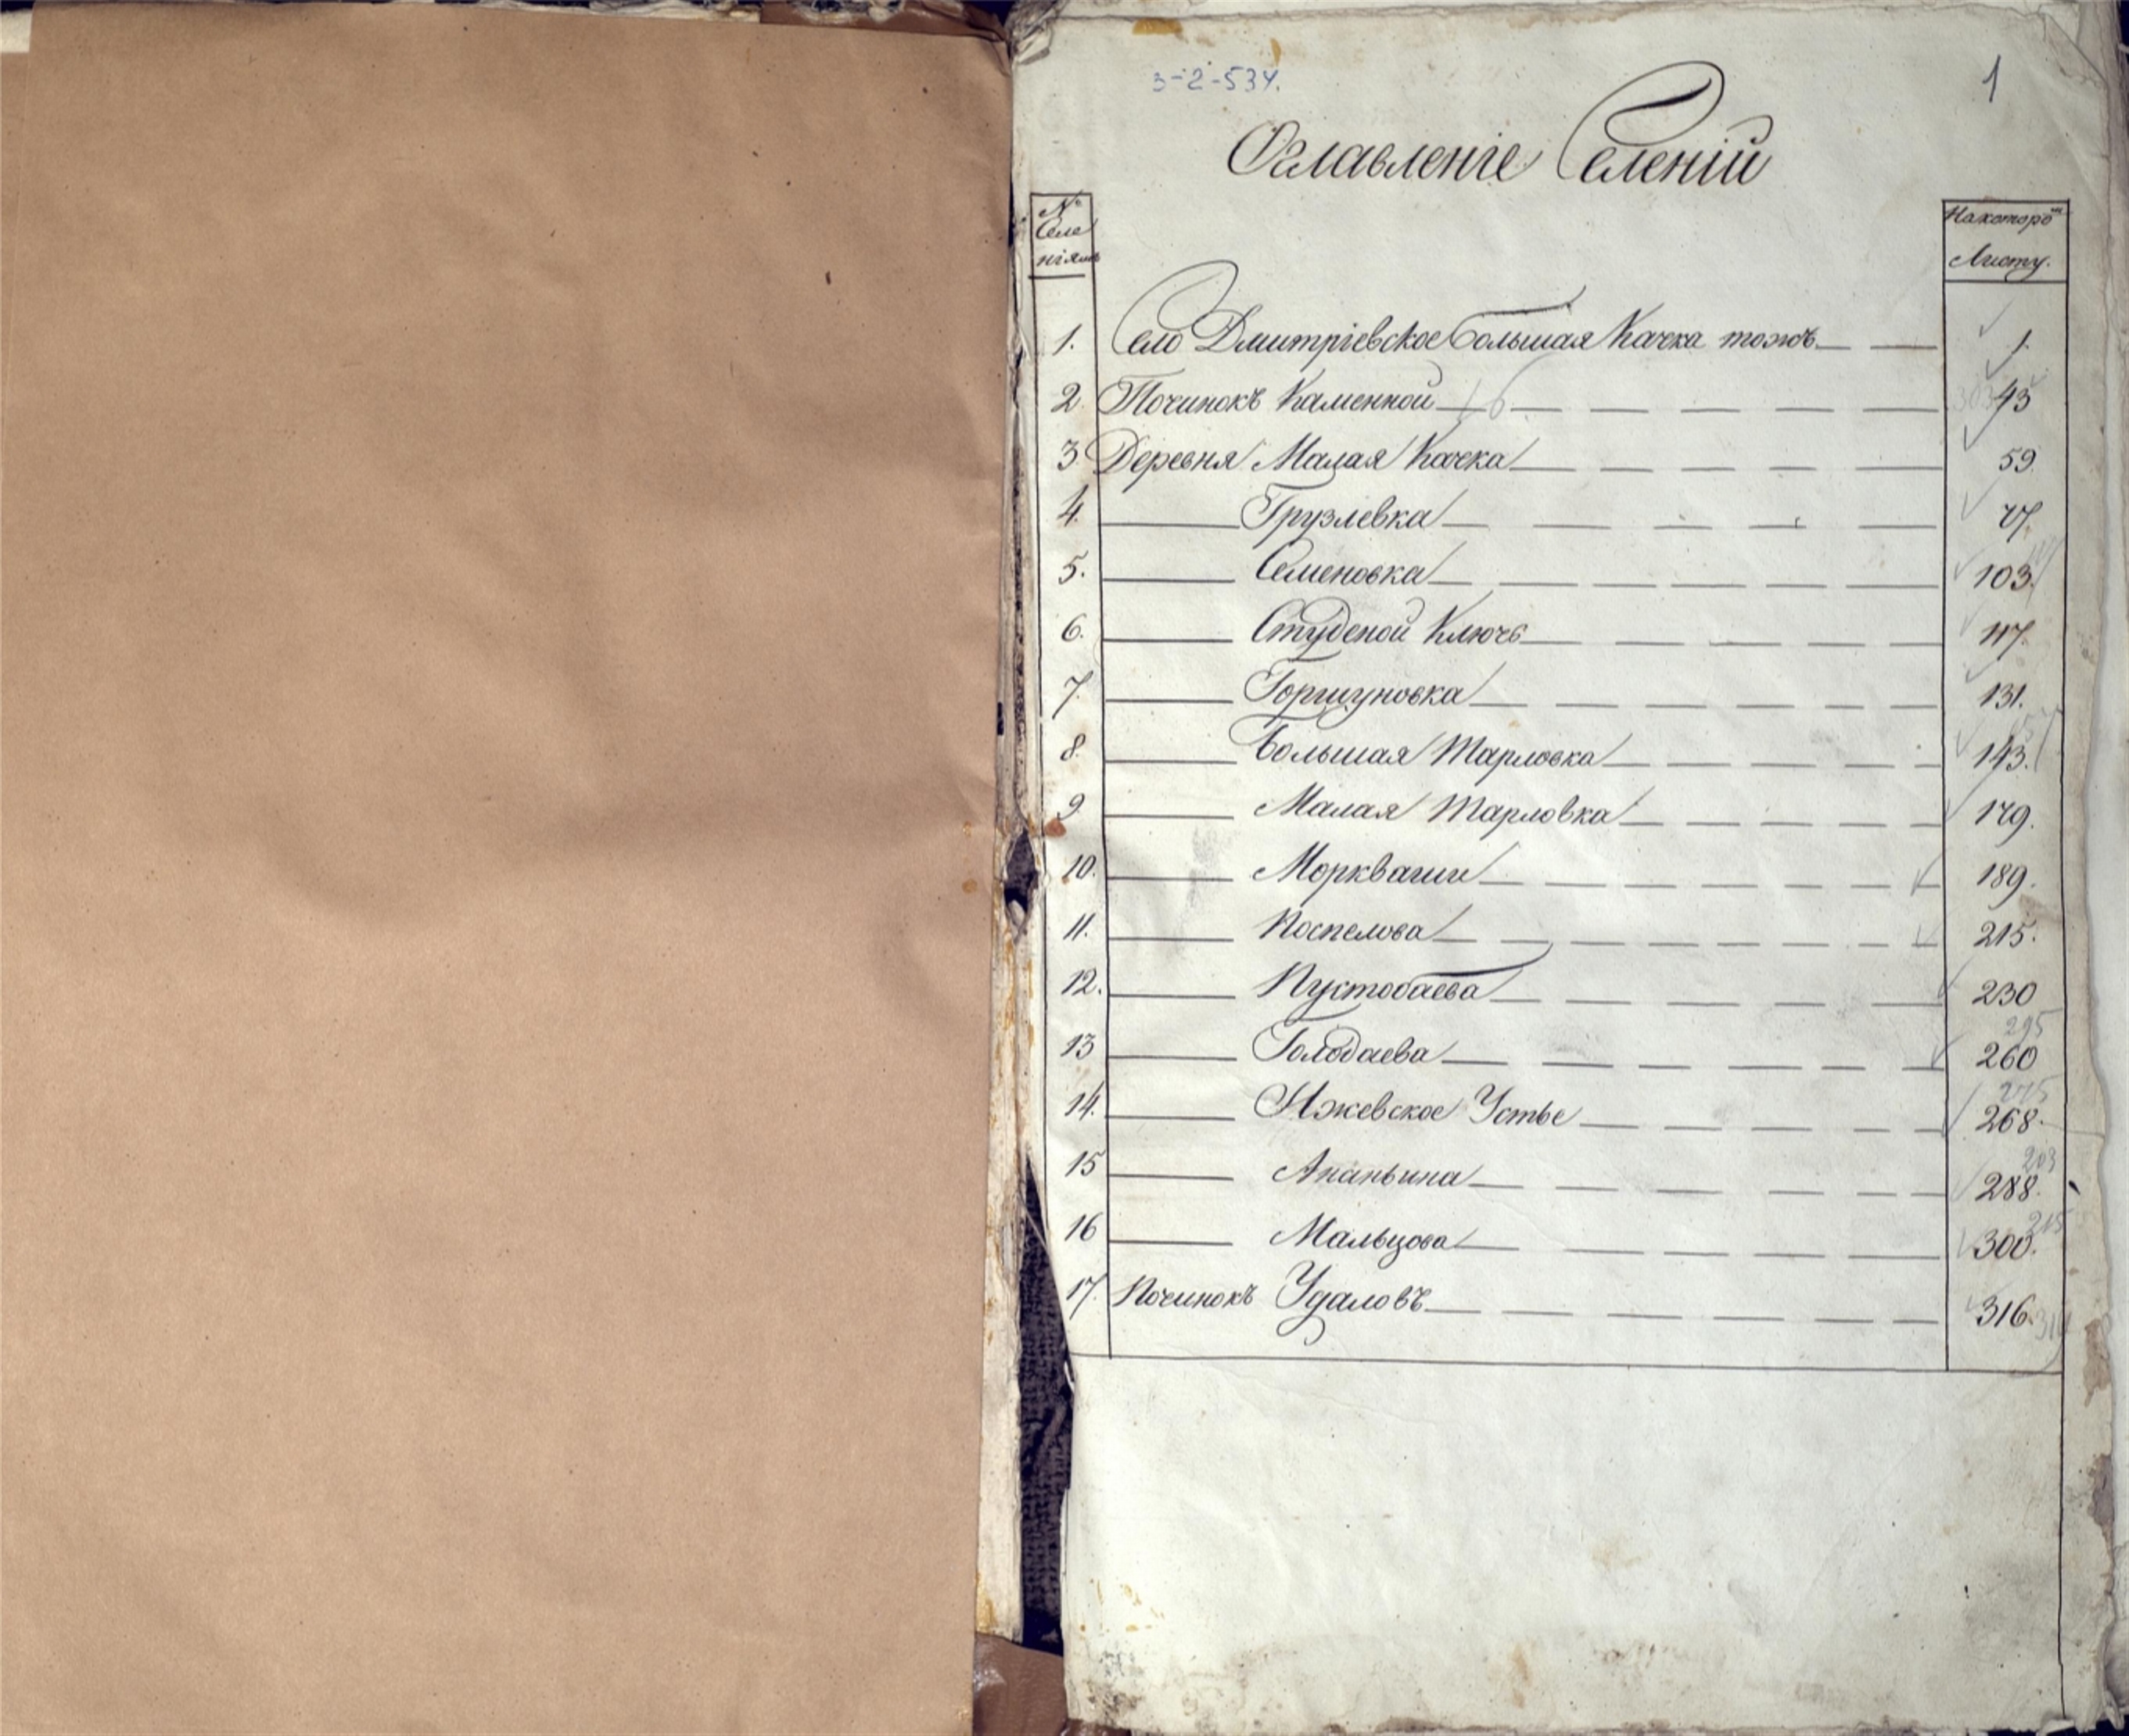 3-2-534.
1
Оглавленіе Селеній
№
Селе
ніямъ
На которо
Листу.
1. Село Дмитріевское Большая Качка тожъ 1.
2. Починокъ Каменной 16 43
3. Деревня Малая Качка 59.
4. Грузлевка 77.
5. Семеновка 103.
6. Студеной Ключъ 117.
7. Горшуновка 131.
8. Большая Тарловка 143.
9. Малая Тарловка 179.
10.Моркваши 189.
11. Поспелова 215.
12. Пустобаева 230
295
13 Голодаева 260
275
14. Ижевское Устье 268.
203
15 Ананьина 288.
215
16 Мальцова 300.
17. Починокъ Удаловъ 316.